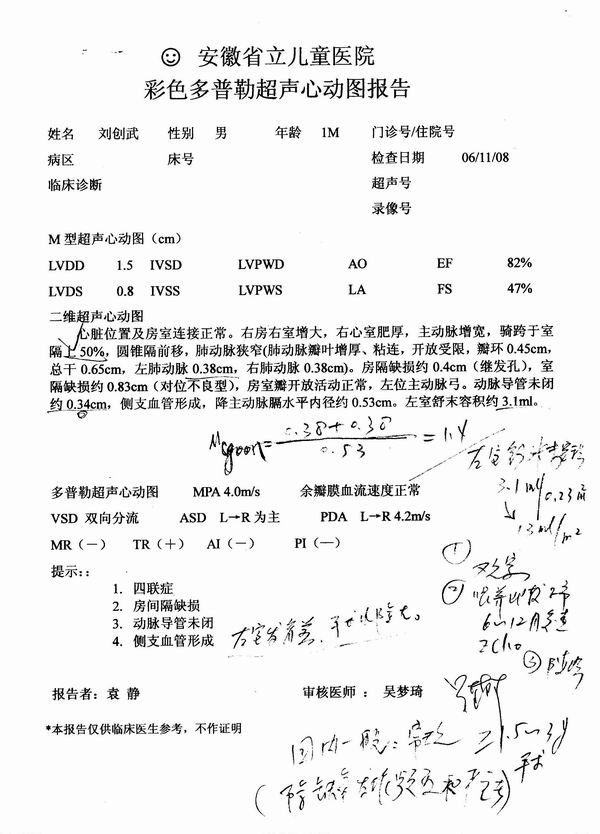 安徽省立儿童医院
彩色多普勒超声心动图报告
姓名 刘创武 性别 男 年龄 1M 门诊号/住院号
病区 床号 检查日期 06/11/08
临床诊断 超声号
录像号
M 型超声心动图（cm）
LVDD 1.5 IVSD LVPWD AO EF 82%
LVDS 0.8 IVSS LVPW(S LA FS 47%
二维超声心动图
心脏位置及房室连接正常。右房右室增大，右心室肥厚，主动脉增宽，骑跨于室
隔上 50%，圆锥隔前移，肺动脉狭窄(肺动脉瓣叶增厚、粘连，开放受限，瓣环 0.45cm，
总干 0.65cm，左肺动脉 0.38cm，右肺动脉 0.38cm)。房隔缺损约 0.4cm (继发孔)，室
隔缺损约 0.83cm（对位不良型），房室瓣开放活动正常，左位主动脉弓。动脉导管未闭
约 0.34cm，侧支血管形成，降主动脉膈水平内径约 0.53cm。左室舒末容积约 3.1ml。
Mcgoon= 0.38+0.38 / 0.53 = 1.4
3.1ml/0.23m²
13ml/m²
多普勒超声心动图 MPA 4.0m/s 余瓣膜血流速度正常
VSD 双向分流 ASD L→R 为主 PDA L→R 4.2m/s
MR（－） TR（＋） AI（－） PI（—）
提示：：
1. 四联症
2. 房间隔缺损
3. 动脉导管未闭
4. 侧支血管形成
①
②
6~12月
③
报告者：袁 静 审核医师： 吴梦琦
*本报告仅供临床医生参考，不作证明
国内一般：
1.5~3y
手术